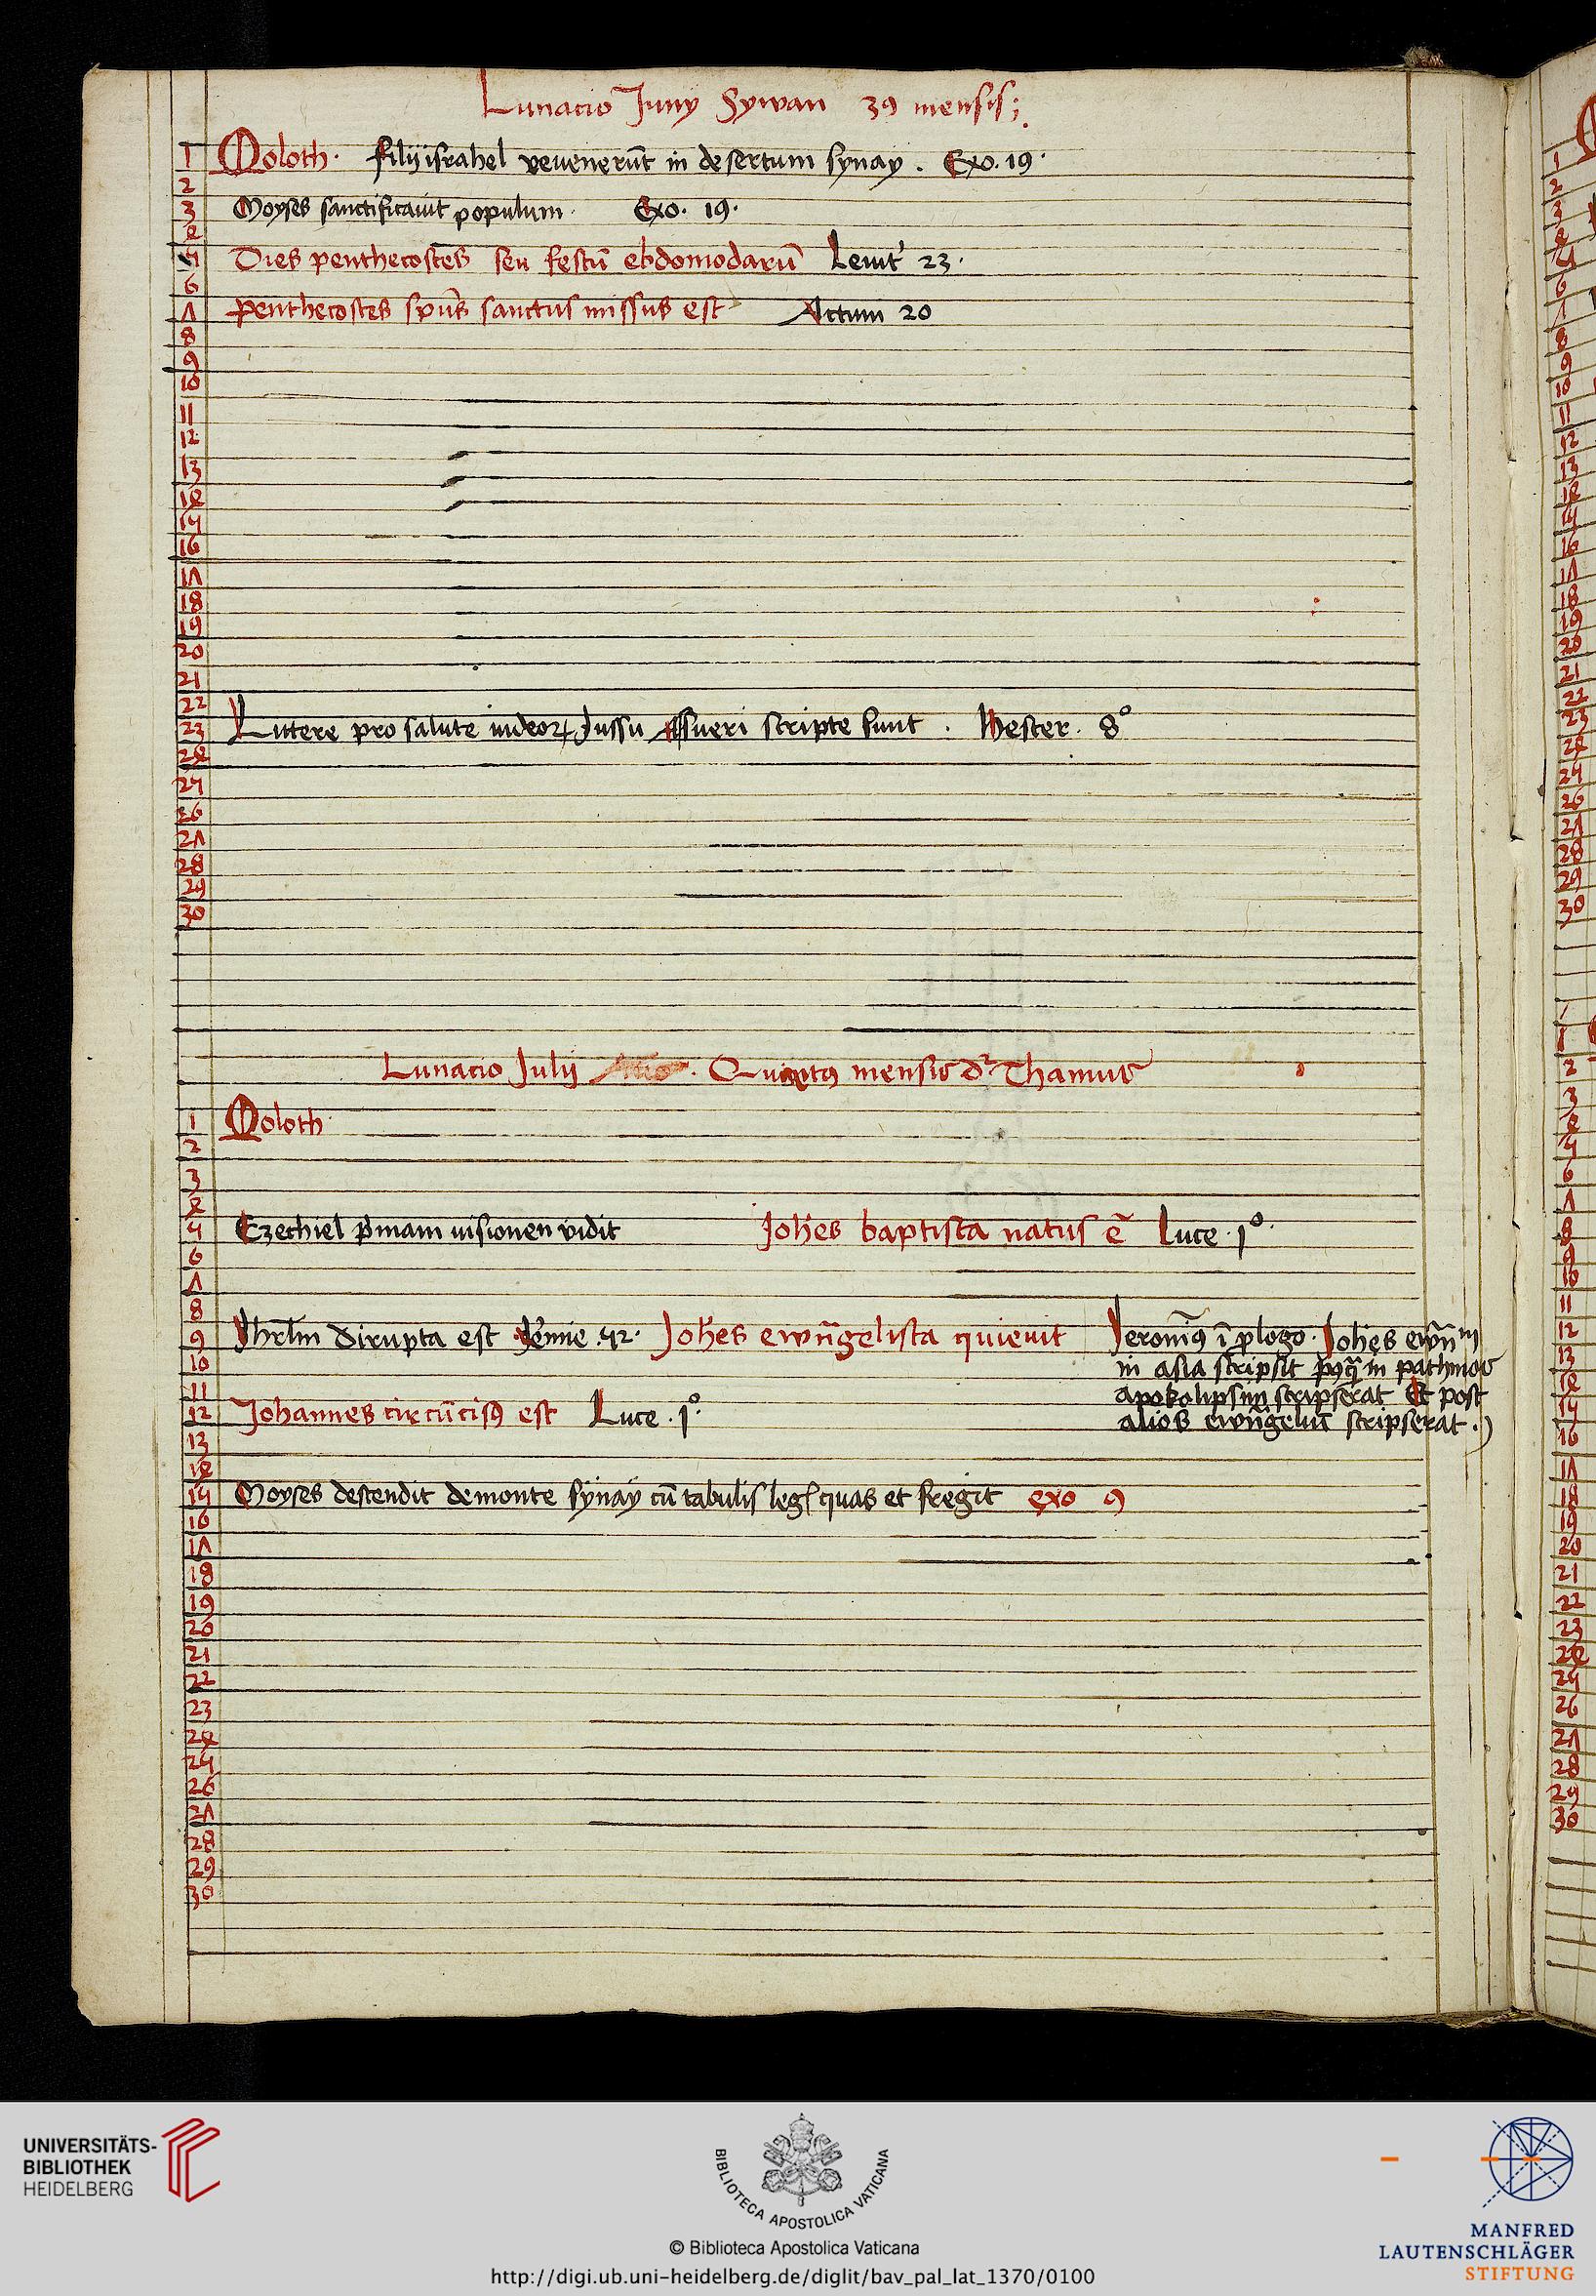 Lunacio Juny Sywan 39 mensis;
1 Noloth. filij israhel venerūt in desertum synay. Exo. 19.
2
3 Moyses sanctificauit populum. Exo. 19.
4
5 Dies penthecostes seu festū ebdomodarū Leuit 23.
6
7 penthecostes spūs sanctus missus est Actum 20
8
9
10
11
12
13
14
15
16
17
18
19
20
21
22
23 Littere pro salute iudeoꝝ Jussu Assueri scripte sunt. Hester. 8°
24
25
26
27
28
29
30
Lunacio Julij Quartꝰ mensis dr Thamus
1 Noloth
2
3
4
5 Ezechiel pmam visionen vidit Johēs baptista natus ē Luce. 1°.
6
7
8
9 Jhrlm dirupta est Jeremie. 52. Johēs ewāngelista quieuit Jeronimꝰ ī plogo. Johēs ewān
10 in asia scripsit in pathmos
11 apokolipsim scripserat Et post
12 Johannes circūcisꝰ est Luce. 1°. alios ewāngeliū scripserat.)
13
14
15 Moyses descendit de monte synay cū tabulis quas et fregit exo 9
16
17
18
19
20
21
22
23
24
25
26
27
28
29
30
UNIVERSITÄTS-
BIBLIOTHEK
HEIDELBERG
BIBLIOTECA APOSTOLICA VATICANA
© Biblioteca Apostolica Vaticana
http://digi.ub.uni-heidelberg.de/diglit/bav_pal_lat_1370/0100
MANFRED
LAUTENSCHLÄGER
STIFTUNG